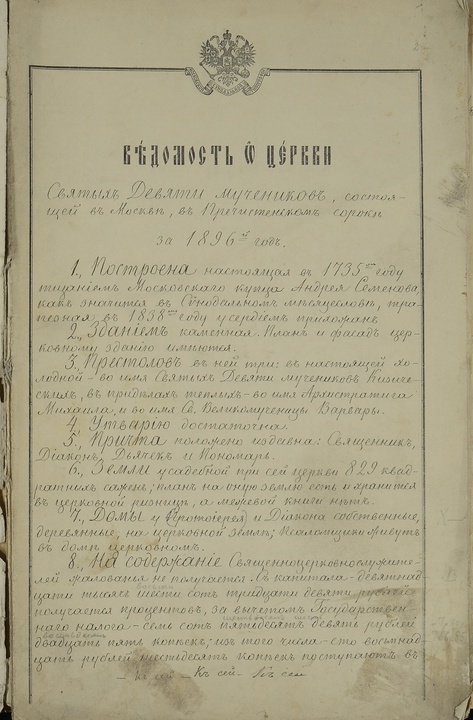 ВѢДОМОСТЬ Ѡ ЦЕРКВИ
Святыхъ Девяти мучениковъ, состоя-
щей въ Москвѣ, въ Пречистенскомъ сорокѣ
за 1896й годъ.
1., Построена настоящая въ 1735мъ году
тщаніемъ Московскаго купца Андрея Семенова,
какъ значится въ Сѵнодальномъ мѣсяцесловѣ, тра-
пезная въ 1838мъ году усердіемъ прихожанъ.
2., Зданіемъ каменная. Планъ и фасадъ цер-
ковному зданію имѣются.
3. Престоловъ въ ней три: въ настоящей хо-
лодной – во имя Святыхъ Девяти мучениковъ Кизиче-
скихъ, въ придѣлахъ теплыхъ – во имя Архистратига
Михаила, и во имя Св. Великомученицы Варвары.
4. Утварію достаточна.
5., Причта положено издавна: Священникъ,
Діаконъ, Дьячекъ и Пономарь.
6., Земли усадебной при сей церкви 829 квад-
ратныхъ сажень; планъ на оную землю есть и хранится
въ церковной ризницѣ, а межевой книги нѣтъ.
7., Домы у Протоіерея и Діакона собственные,
деревянные, на церковной землѣ; Псаломщики живутъ
въ домѣ церковномъ.
8., На содержаніе Священноцерковнослужите-
лей жалованья не получается. Съ капитала – девятнад-
цати тысячъ шести сотъ тридцати девяти рублей
получается процентовъ, за вычетомъ Государствен-
наго налога – семь сотъ пятьдесятъ девять рублей
двадцать пять копѣекъ; изъ того числа – сто восемнад-
цать рублей шестьдесятъ копѣекъ поступаютъ въ
Къ сей